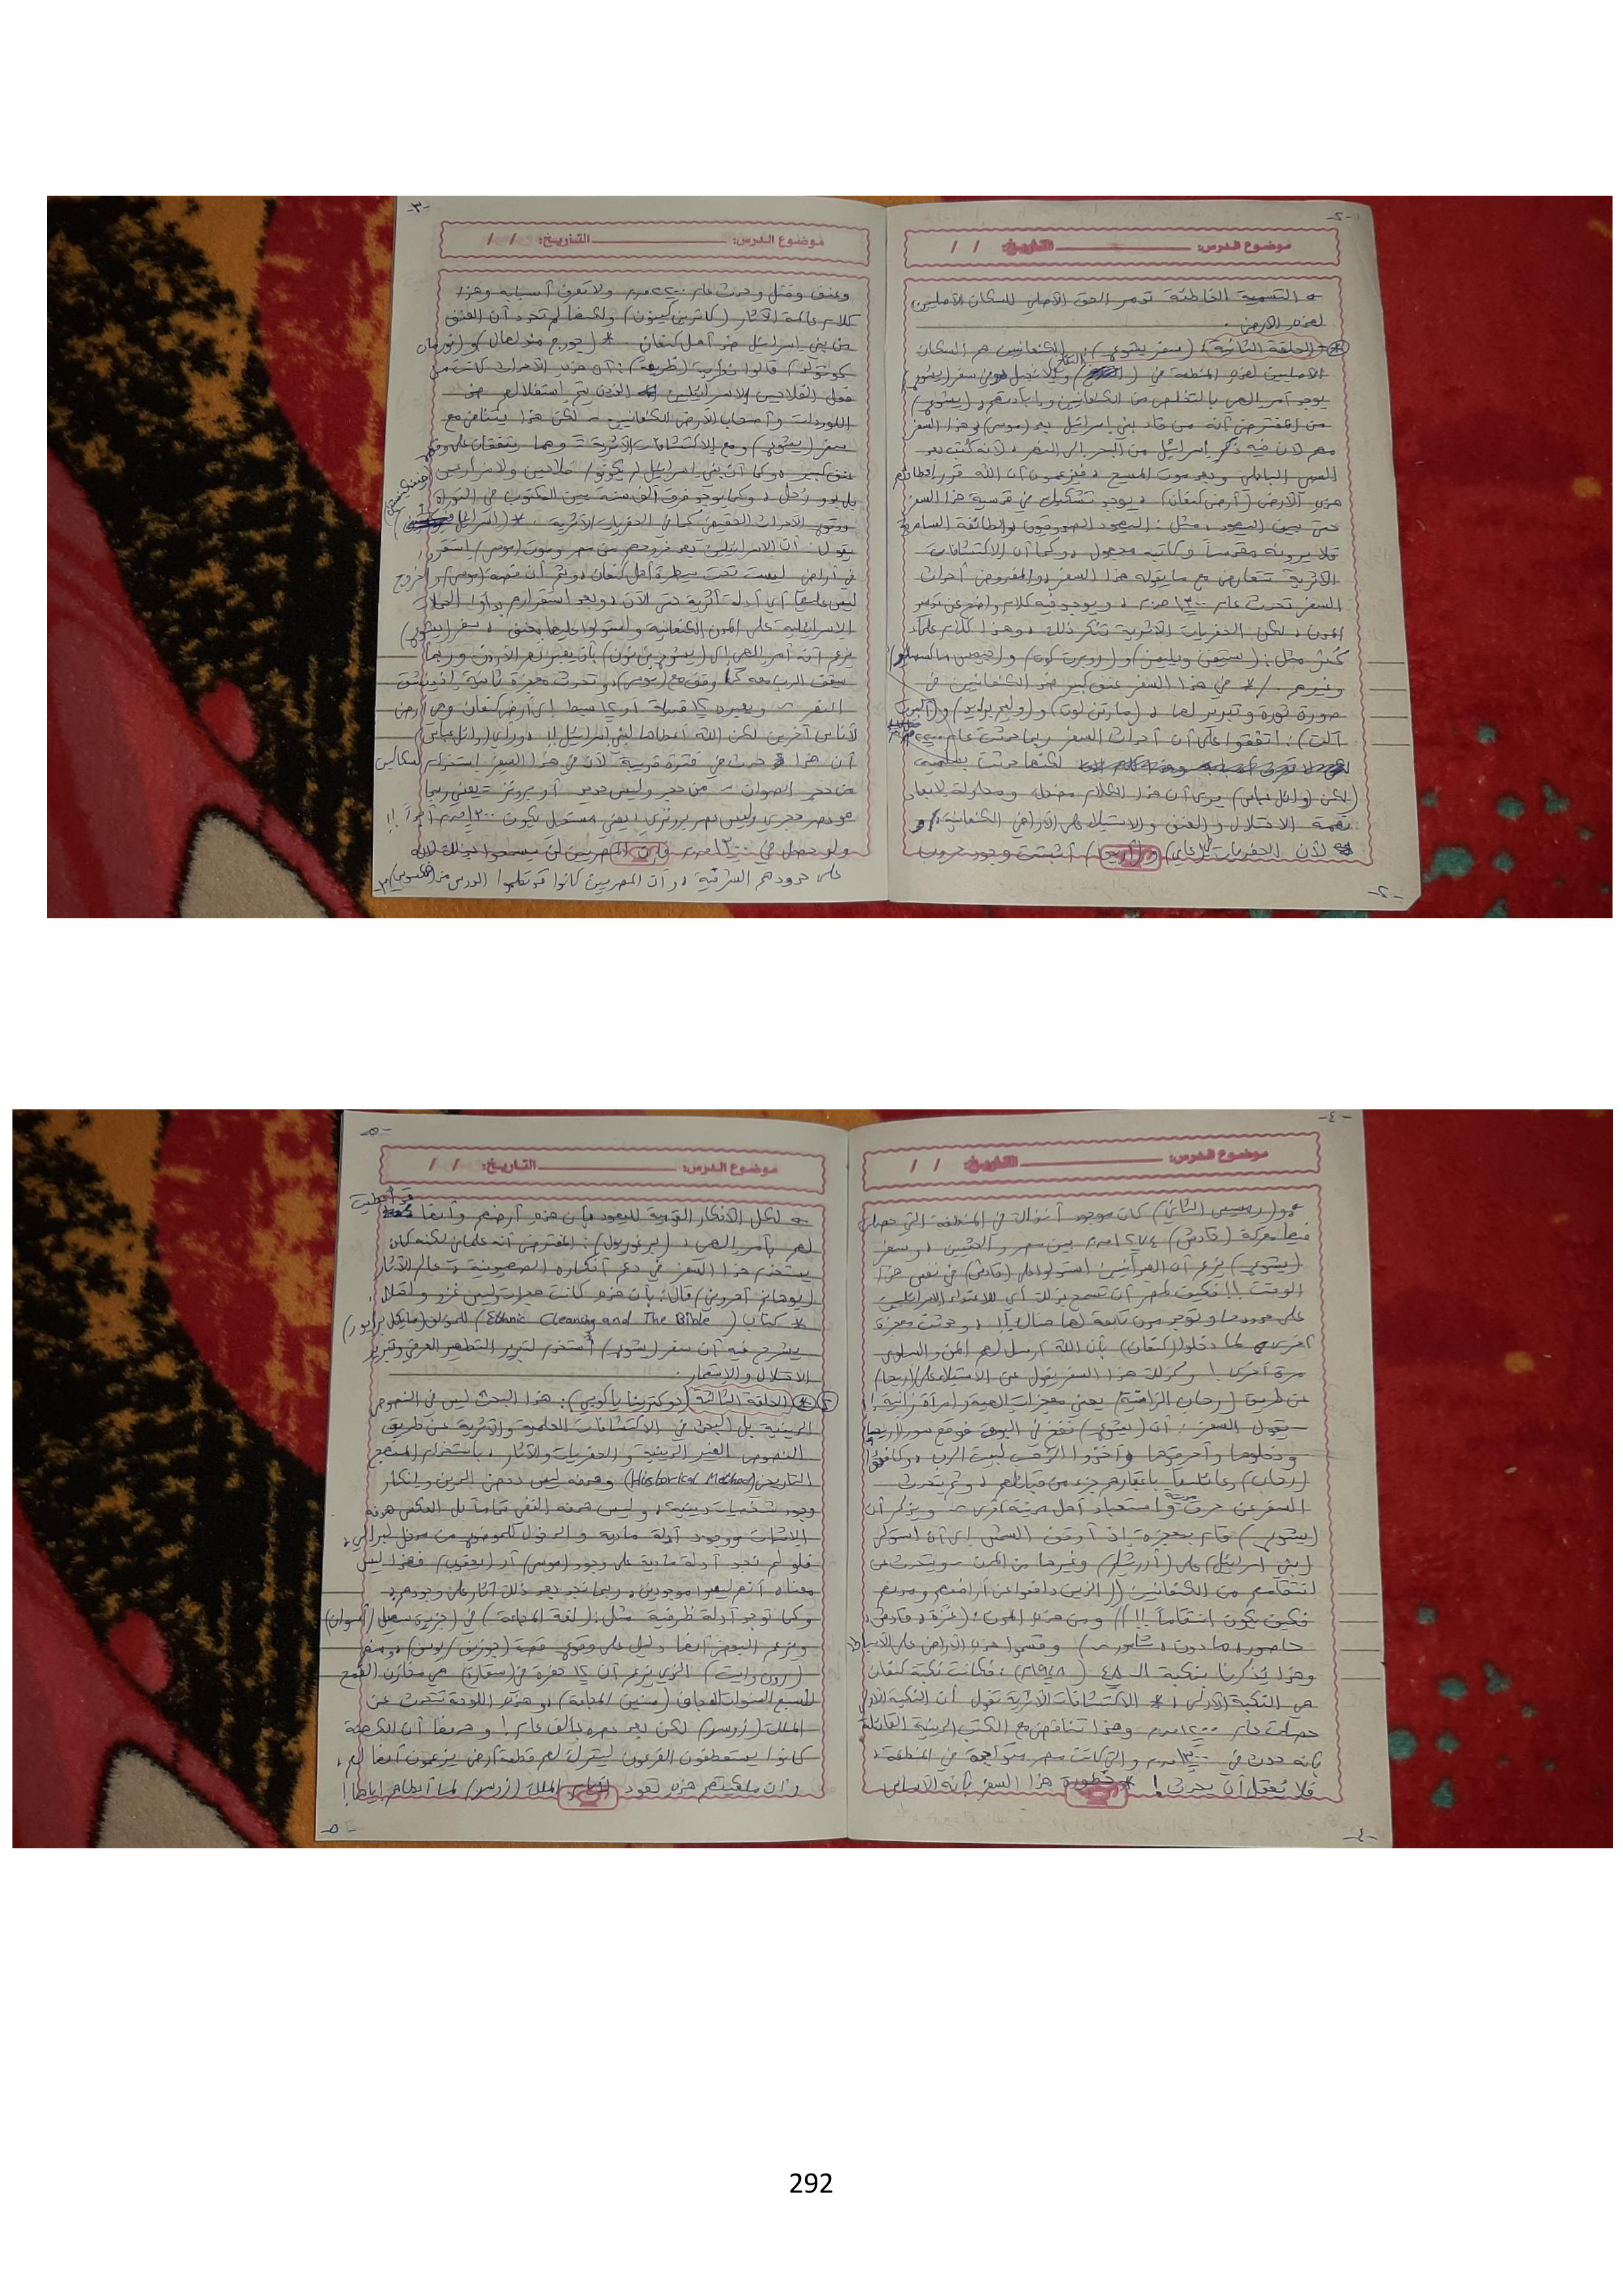 -٢-
موضوع الدرس: التاريخ: / /
التسمية الخاطئة تدمر الحق الأصلي للسكان الأصليين
لهذه الأرض.
* الحلقة الثانية: (سفر يشوع): الكنعانيين هم السكان
الأصليين لهذه المنطقة في والإنجيل وفي سفر (يشوع)
يوجد أمر إلهي بالتخلص من الكنعانيين وإبادتهم، (يشوع)
من المفترض أنه من قاد بني إسرائيل بعد (موسى) وهذا السفر
مهم لأن فيه ذكر إسرائيل من البحر إلى النهر، لأنه كُتب بعد
السبي البابلي وبعد موت المسيح، فيزعمون أن الله قرر إعطائهم
هذه الأرض (أرض كنعان)، يوجد تشكيك في قدسية هذا السفر
حتى بين اليهود، مثل: اليهود الصدوقيون والطائفة السامرية
فلا يرونه مقدساً وكاتبه مجهول، وكما أن الاكتشافات
الأثرية تتعارض مع ما يقوله هذا السفر، والمفروض أحداث
السفر تحدث عام ١٣٠٠ ق.م، ويوجد فيه كلام واضح عن تدمير
المدن، لكن الحفريات الأثرية تنكر ذلك، وهذا كلام علماء
كُثر مثل: (ستيفن ويليمز) و(روبرت كوت) و
وغيرهم. * في هذا السفر عنف كبير ضد الكنعانيين في
صورة ثورة وتبرير لها، (مارتن نوت) و(وليم برايد) و(ألبرت
آلت): اتفقوا على أن أحداث السفر ربما حدثت عام
لكنها حدثت بسلمية
لكن (وائل عباس) يرى أن هذا الكلام مضلل ومحاولة لإبعاد
تهمة الاحتلال والعنف والاستيلاء على الأراضي الكنعانية، و
لأن الحفريات لـ(عاي) و(أريحا) أثبتت وجود حروب
-٢-
-٣-
موضوع الدرس: التاريخ: / /
وعنف وقتل وحدث عام ٢٢٠٠ ق.م ولا نعرف أسبابه وهذا
كلام عالمة الآثار (كاثرين كينون) ولكنها لم تحدد أن العنف
من بني إسرائيل ضد أهل كنعان. * (جورج مندنهال) و(نورمان
كوتولد) قالوا نظرية (طريفة): أن هذه الأحداث كانت من
قبل الفلاحين الإسرائيليين الذين يتم استغلالهم من
اللوردات وأصحاب الأرض الكنعانيين - لكن هذا يتناقض مع
سفر (يشوع) ومع الاكتشافات الأثرية = وهما يتفقان على وقوع
عنف كبير، وكما أن بني إسرائيل لم يكونوا فلاحين ولا مزارعين
بل بدو رُحل، وكما يوجد فرق ألف سنة بين المكتوب في التوراة
ووقوع الأحداث الحقيقي كما في الحفريات الأثرية. *
يقول: أن الإسرائيليين بعد خروجهم من مصر وموت (موسى) استقروا
في أراضي ليست تحت سيطرة أهل كنعان، ثم أن قصة (موسى) والخروج
ليس عليها أي أدلة أثرية حتى الآن، وبعد استقرارهم بدأوا الحملات
الإسرائيلية على المدن الكنعانية واستولوا عليها بعنف، سفر (يشوع)
يزعم أنه أمر إلهي إلى (يشوع بن نون) بأن يعبر نهر الأردن وربما
سيقف الرب معه كما وقف مع (موسى)، وتحدث معجزة ثانية إذ ينشق
النهر - ويعبره ١٢ قبيلة أو ١٢ سبط إلى أرض كنعان وهي أرض
لأناس آخرين لكن الله أعطاها لبني إسرائيل!!، ورأي (وائل عباس)
أن هذا حدث في فترة قديمة لأن في هذا السفر استخدام لسكاكين
من حجر الصوان - من حجر وليس حديد أو برونز = يعني ربما
هو عصر حجري وليس عصر برونزي، يعني مستحيل يكون ١٢٠٠ ق.م أبداً!!
ولو حصل في ١٢٠٠ ق.م فإن المصريين لن يسمحوا بذلك لأنه
على حدودهم الشرقية، وأن المصريين كانوا قد تعلموا الدرس من (الهكسوس)
-٣-
-٤-
موضوع الدرس: التاريخ: / /
و(رمسيس الثاني) كان موجود آنذاك في المنطقة التي حصلت
فيها معركة (قادش) ١٢٧٤ ق.م بين مصر والحثيين، وسفر
(يشوع) يزعم أن العبرانيين استولوا على (قادش) في نفس هذا
الوقت!! فكيف لمصر أن تسمح بذلك أي للاعتداء الإسرائيلي
على حدودها وتوجد مدن تابعة لها هنالك!!، وحدثت معجزة
أخرى لما دخلوا (كنعان) بأن الله أرسل لهم المن والسلوى
مرة أخرى! وكذلك هذا السفر يقول عن الاستيلاء على (أريحا)
عن طريق (رحاب الزانية) يعني معجزات إلهية وامرأة زانية!
يقول السفر: أن (يشوع) نفخ في البوق فوقع سور (أريحا)
ودخلوها وأحرقوها وأخذوا الذهب لبيت الرب، وكافئوا
(رحاب) وعائلتها باعتبارهم جزء من قبائلهم، ثم يتحدث
السفر عن حرق واستعباد أهل مدينة أخرى - ويذكر أن
(يشوع) قام بمعجزة إذ أوقف الشمس إلى أن استولى
(بني إسرائيل) على (أورشليم) وغيرها من المدن - ويتحدث عن
انتقامهم من الكنعانيين ((الذين دافعوا عن أراضيهم ومدنهم
فكيف يكون انتقاماً!!)) ومن هذه المدن: (غزة، قادش،
حاصور، مادون، شمرون) وقسموا هذه الأراضي على الأسباط
وهذا يُذكرنا بنكبة الـ ٤٨ (١٩٤٨م): فكانت نكبة كنعان
هي النكبة الأولى، * الاكتشافات الأثرية تقول أن النكبة الأولى
حصلت عام ٢٢٠٠ ق.م وهذا تناقض مع الكتب الدينية القائلة
بأنه حدث في ١٣٠٠ ق.م والتي كانت مصر متواجدة في المنطقة،
فلا يُعقل أن يحدث! * خطورة هذا السفر بأنه الأساس
-٤-
-٥-
موضوع الدرس: التاريخ: / /
لكل الأفكار القومية لليهود بأن هذه أرضهم وأنها قد أُعطيت
لهم بأمر إلهي، (بن غوريون): المفترض أنه علماني لكنه كان
يستخدم هذا السفر في دعم أفكاره الصهيونية، عالم الآثار
(يوهانز أهروني) قال: بأن هذه كانت هجرات وليس غزو واحتلال،
* كتاب (Ethnic Cleansing and The Bible) للمؤلف (مايكل برايور)
يشرح فيه أن سفر (يشوع) أُستخدم لتبرير التطهير العرقي وتبرير
الاحتلال والاستعمار.
* الحلقة الثالثة (دوكترينا ياكوبي): هذا البحث ليس في النصوص
الدينية بل البحث في الاكتشافات العلمية والأثرية عن طريق
النصوص الغير الدينية والحفريات والآثار، باستخدام المنهج
التاريخي (Historical Method) وهدفه ليس دحض الدين وإنكار
وجود شخصيات دينية، وليس هدفه النفي تماماً بل العكس هدفه
الإثبات ووجود أدلة مادية والدخول للموضوع من مدخل ليبرالي،
فلو لم نجد أدلة مادية على وجود (موسى) أو (يعقوب) فهذا ليس
معناه أنهم ليسوا موجودين، ربما نجد بعد ذلك آثار على وجودهم،
وكما توجد أدلة ظرفية مثل: (لوحة المجاعة) في (جزيرة سهيل/أسوان)
ويزعم البعض أنها دليل على وقوع قصة (يوزرسيف/يوسف)، ومنهم
(رون وايت) الذي يزعم أن ١٢ حفرة في (سقارة) هي مخازن القمح
للسبع السنوات العجاف (سنين المجاعة)، وهذه اللوحة تتحدث عن
الملك (زوسر) لكن بعد عصره بألف عام! وحرفياً أن الكهنة
كانوا يستعطفون الفرعون ليترك لهم قطعة أرض يزعمون أنها لهم،
وأن ملكيتهم هذه تعود لأيام الملك (زوسر) لما أعطاهم إياها!
-٥-
292